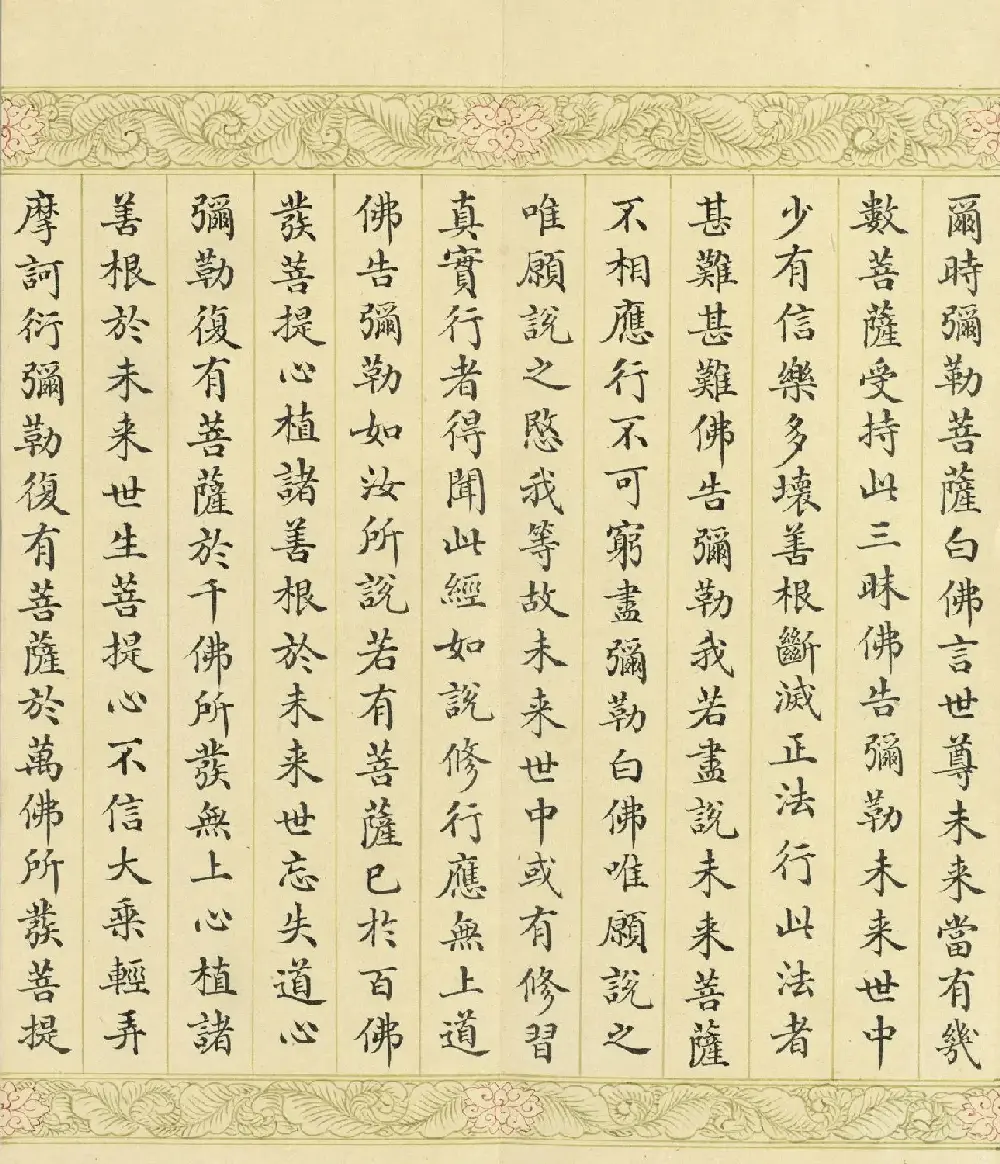 爾時彌勒菩薩白佛言世尊未来當有幾
數菩薩受持此三昧佛告彌勒未来世中
少有信樂多壞善根斷滅正法行此法者
甚難甚難佛告彌勒我若盡說未来菩薩
不相應行不可窮盡彌勒白佛唯願說之
唯願說之愍我等故未来世中或有修習
真實行者得聞此經如說修行應無上道
佛告彌勒如汝所說若有菩薩已於百佛
發菩提心植諸善根於未来世忘失道心
彌勒復有菩薩於千佛所發無上心植諸
善根於未来世生菩提心不信大乘輕弄
摩訶衍彌勒復有菩薩於萬佛所發菩提